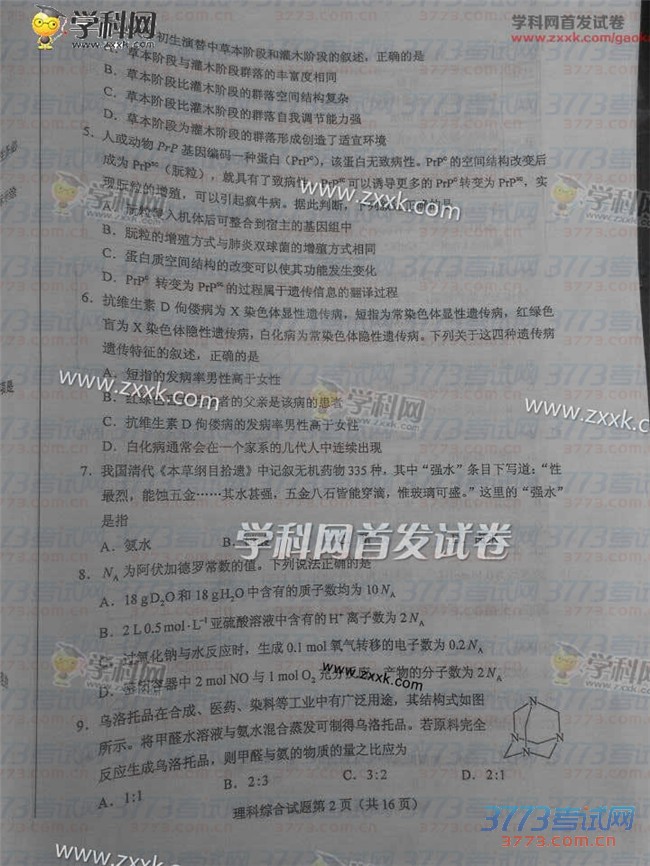 学科网
学科网首发试卷
www.zxxk.com
zxxk.com/gaok
初生演替中草本阶段和灌木阶段的叙述，正确的是
草本阶段与灌木阶段群落的丰富度相同
B．草本阶段比灌木阶段的群落空间结构复杂
C．草本阶段比灌木阶段的群落自我调节能力强
D．草本阶段为灌木阶段的群落形成创造了适宜环境
5．人或动物 PrP 基因编码一种蛋白（PrPᶜ），该蛋白无致病性。PrPᶜ 的空间结构改变后
成为 PrPˢᶜ（朊粒），就具有了致病性。PrPˢᶜ 可以诱导更多的 PrPᶜ 转变为 PrPˢᶜ，实
现朊粒的增殖，可以引起疯牛病。据此判断，下列 的是
www.zxxk.com
A．朊粒侵入机体后可整合到宿主的基因组中
B．朊粒的增殖方式与肺炎双球菌的增殖方式相同
C．蛋白质空间结构的改变可以使其功能发生变化
D．PrPᶜ 转变为 PrPˢᶜ 的过程属于遗传信息的翻译过程
6．抗维生素 D 佝偻病为 X 染色体显性遗传病，短指为常染色体显性遗传病，红绿色
盲为 X 染色体隐性遗传病，白化病为常染色体隐性遗传病。下列关于这四种遗传病
遗传特征的叙述，正确的是
A．短指的发病率男性高于女性
B．红绿色 者的父亲是该病的患者
www.zxxk.com
学科网
www.zxxk.com
C．抗维生素 D 佝偻病的发病率男性高于女性
D．白化病通常会在一个家系的几代人中连续出现
7．我国清代《本草纲目拾遗》中记叙无机药物 335 种，其中“强水”条目下写道：“性
最烈，能蚀五金……其水甚强，五金八石皆能穿滴，惟玻璃可盛。”这里的“强水”
是指
学科网首发试卷
A．氨水 B．
8．Nᴀ 为阿伏加德罗常数的值，下列说法正确的是
A．18 g D₂O 和 18 g H₂O 中含有的质子数均为 10 Nᴀ
B．2 L 0.5 mol·L⁻¹ 亚硫酸溶液中含有的 H⁺ 离子数为 2 Nᴀ
过氧化钠与水反应时，生成 0.1 mol 氧气转移的电子数为 0.2 Nᴀ
学科网
www.zxxk.com
D．密闭容器中 2 mol NO 与 1 mol O₂ 充 产物的分子数为 2 Nᴀ
9．乌洛托品在合成、医药、染料等工业中有广泛用途，其结构式如图
所示。将甲醛水溶液与氨水混合蒸发可制得乌洛托品。若原料完全
反应生成乌洛托品，则甲醛与氨的物质的量之比应为
N
N
N
N
A．1:1 B．2:3 C．3:2 D．2:1
理科综合试题第 2 页（共 16 页）
3773考试网
www.zxxk.com
学科网
www.3773.com.cn